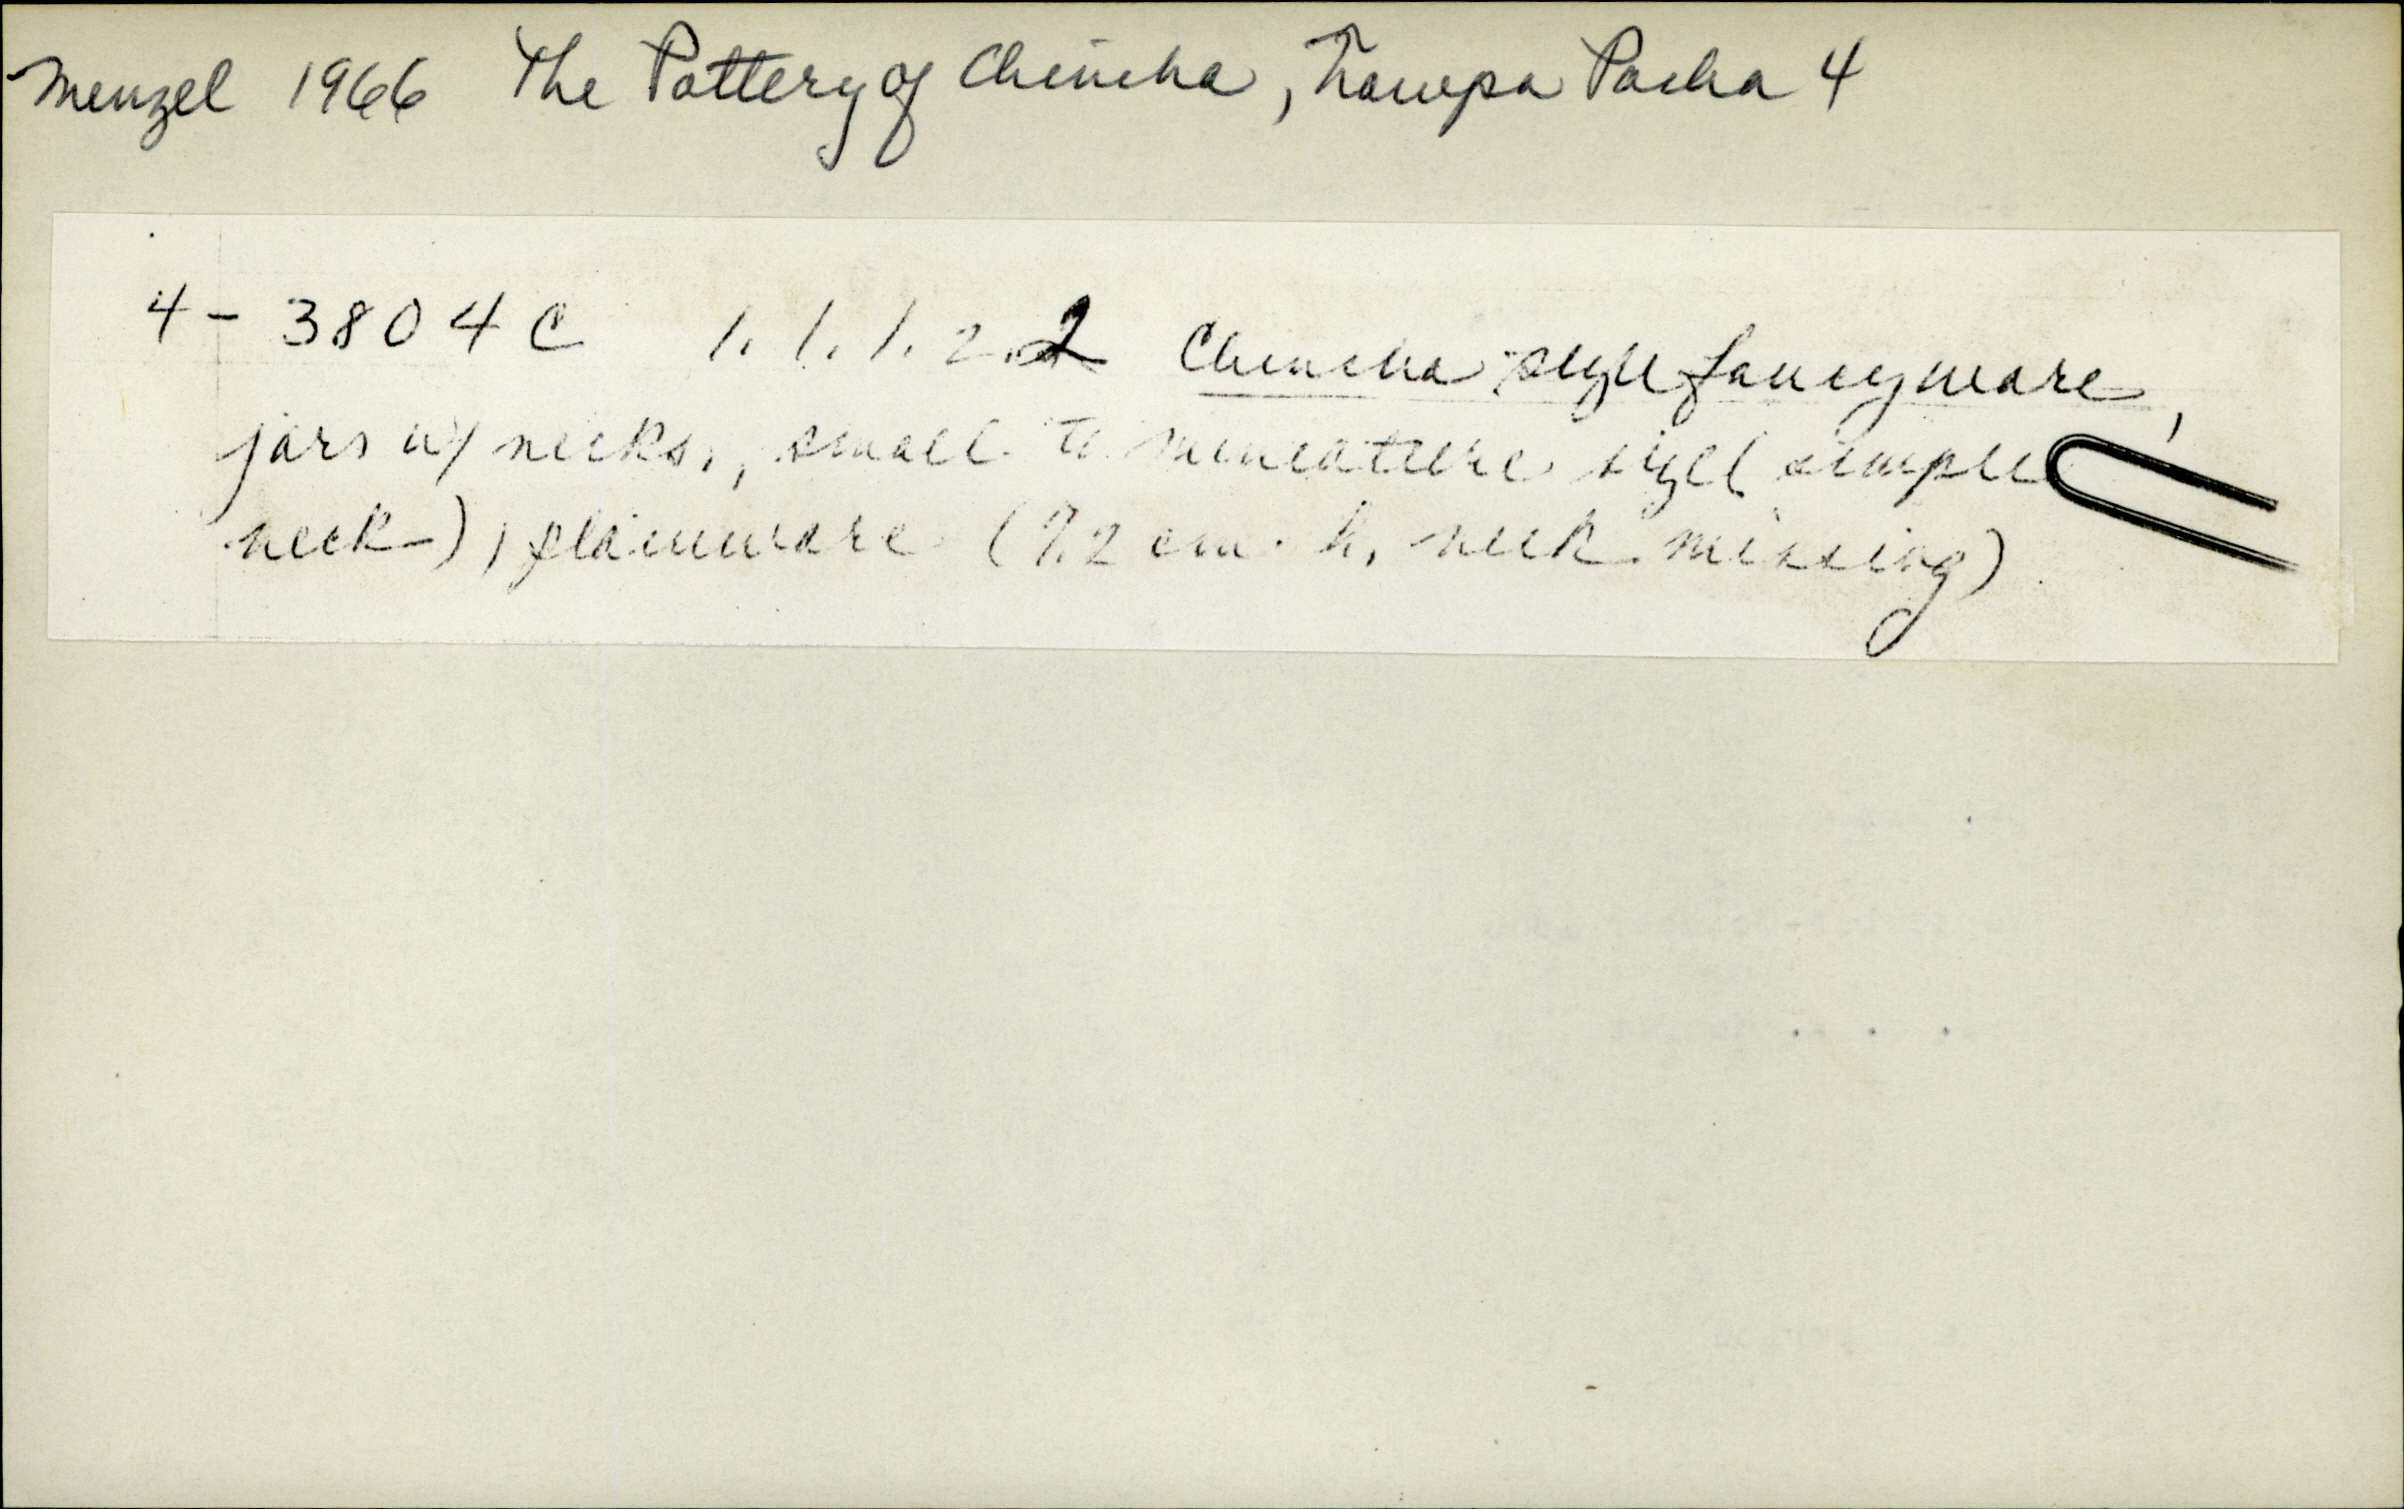 Menzel 1966 The Pottery of Chincha, Ñawpa Pacha 4
4-3804C 1.1.1.2.2 Chincha style fancyware,
jars w/ necks, small to miniature size (simple
neck), plainware (7.2 cm. h, neck missing)